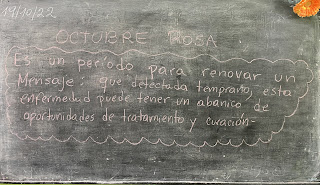 19/10/22
OCTUBRE ROSA
Es un período para renovar un
Mensaje: que detectada temprano, esta
enfermedad puede tener un abanico de
oportunidades de tratamiento y curación-